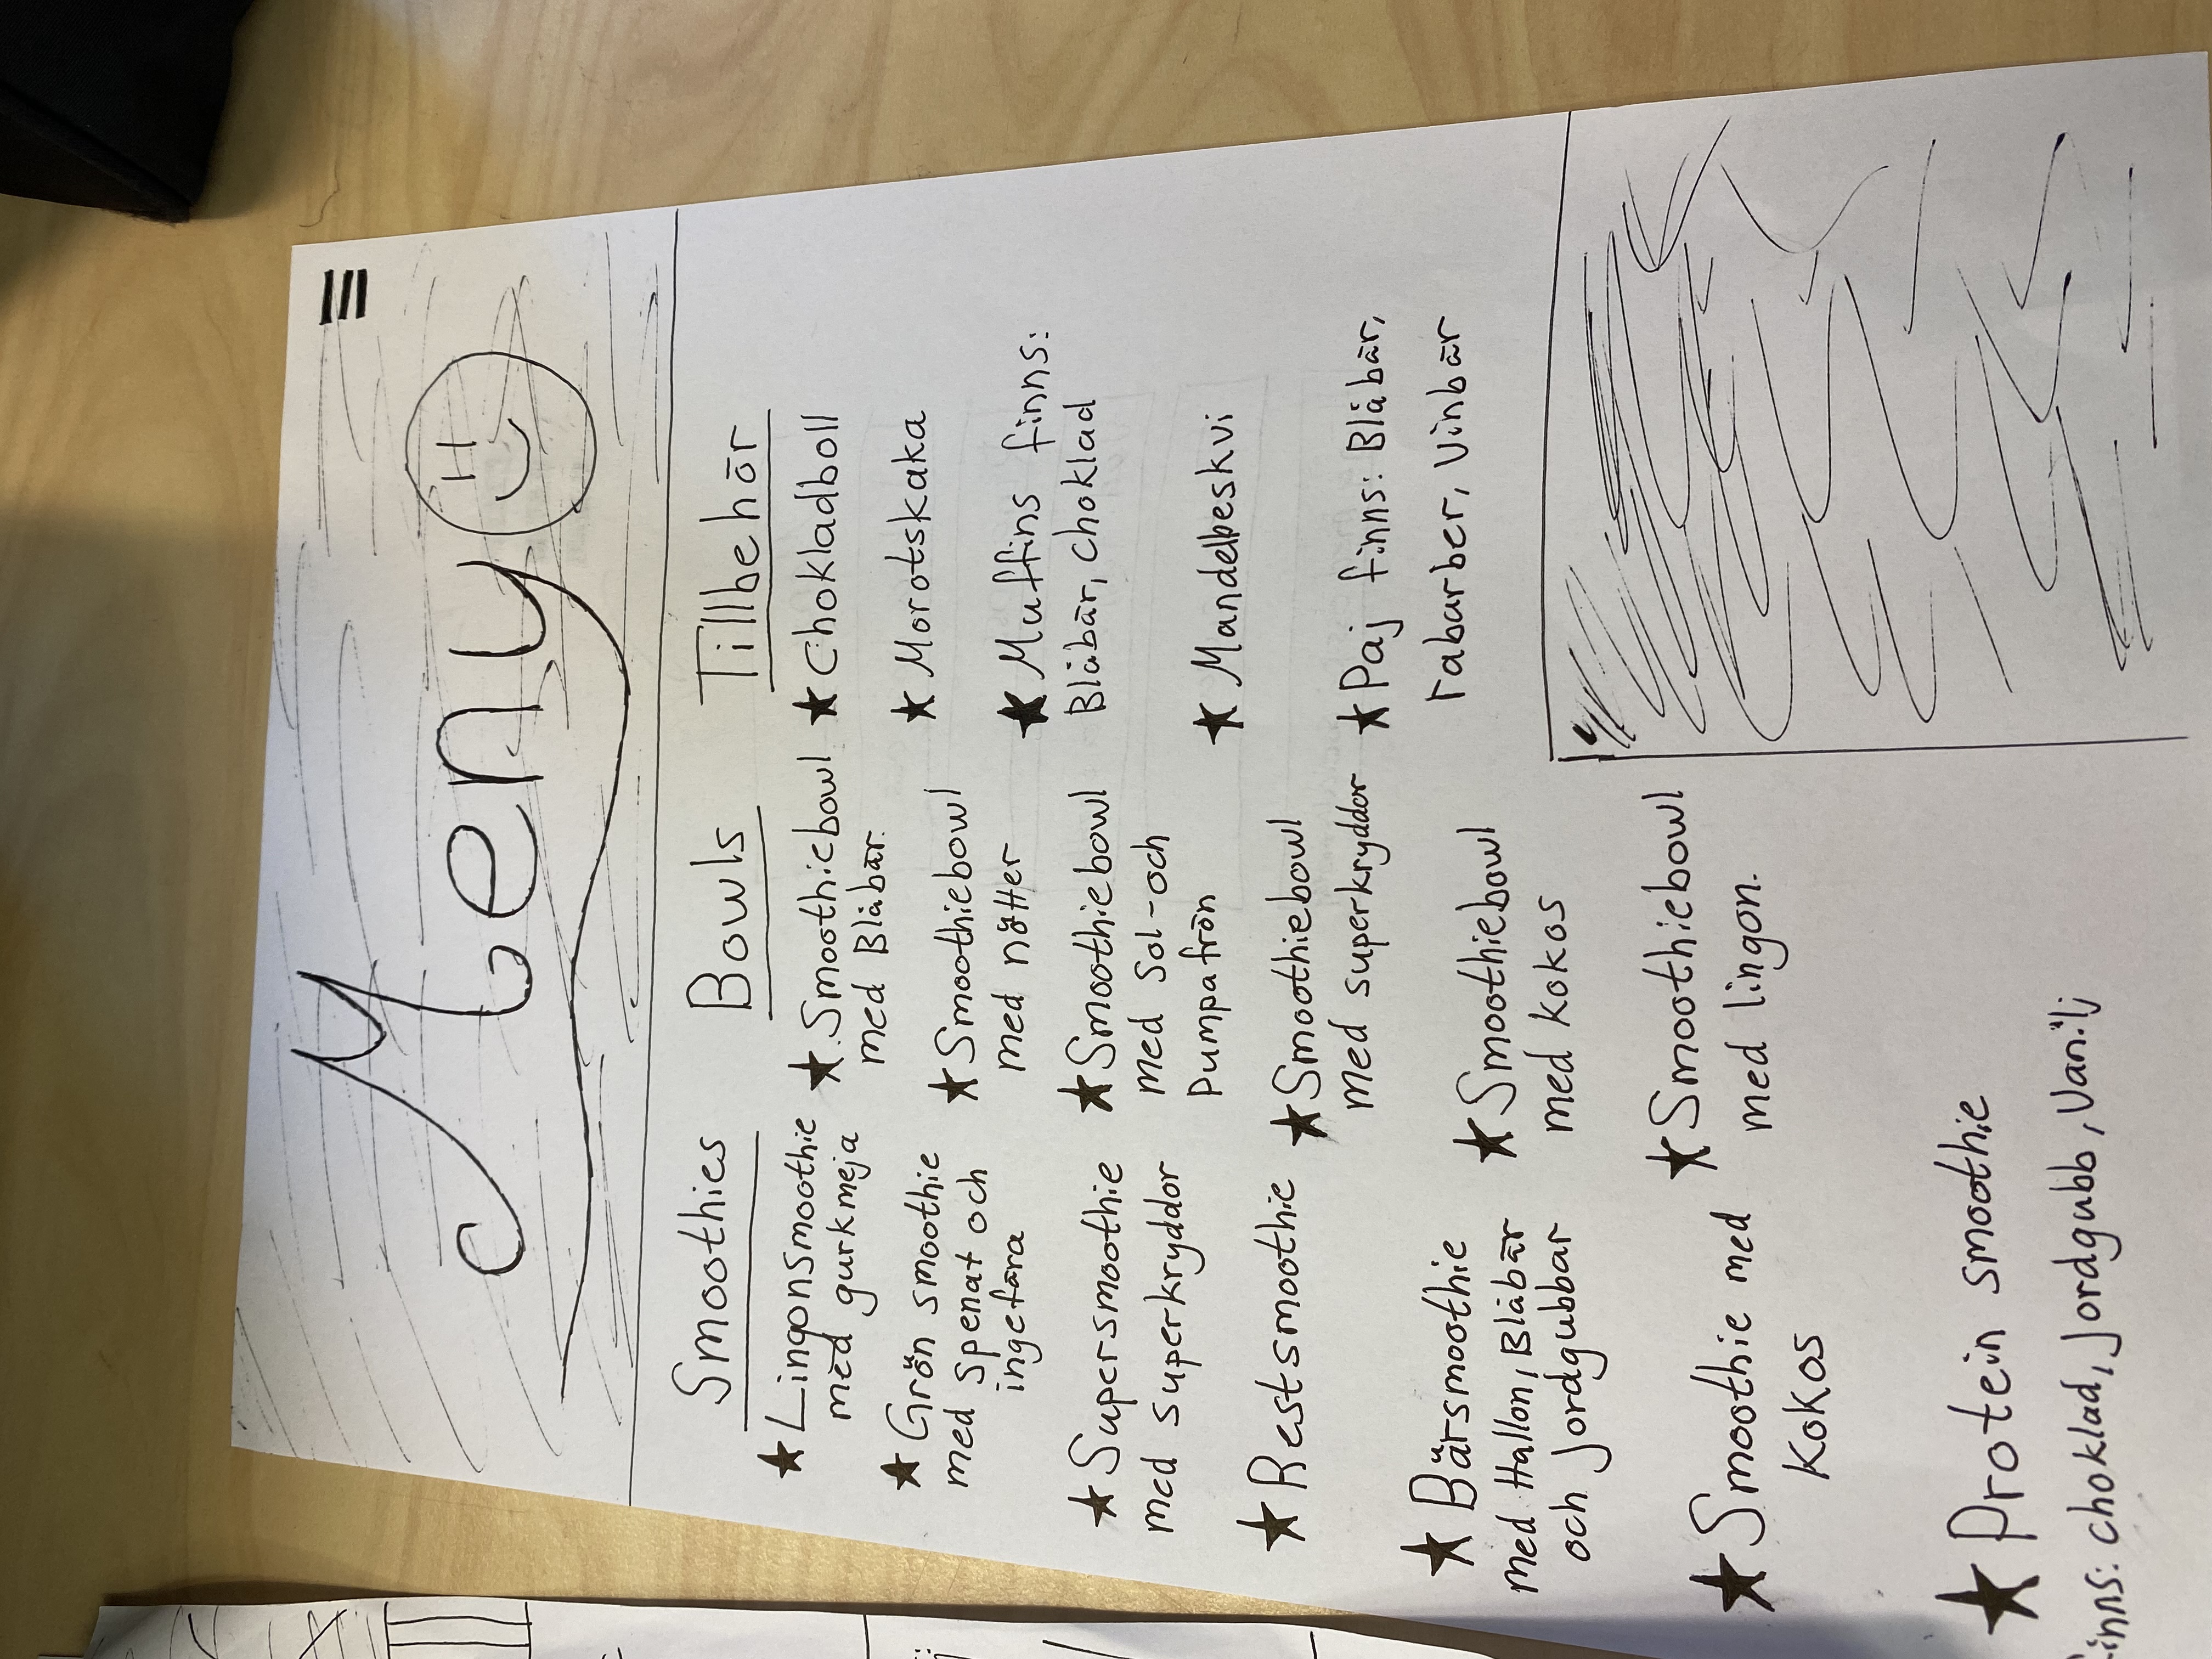 Meny
Smoothies
★ Lingonsmoothie
med gurkmeja
★ Grön smoothie
med spenat och
ingefära
★ Supersmoothie
med superkryddor
★ Restsmoothie
★ Bärsmoothie
med Hallon, Blåbär
och Jordgubbar
★ Smoothie med
Kokos
★ Protein smoothie
finns: choklad, Jordgubb, Vanilj
Bowls
★ Smoothiebowl
med Blåbär.
★ Smoothiebowl
med nötter
★ Smoothiebowl
med Sol-och
Pumpafrön
★ Smoothiebowl
med superkryddor
★ Smoothiebowl
med kokos
★ Smoothiebowl
med lingon.
Tillbehör
★ Chokladboll
★ Morotskaka
★ Muffins finns:
Blåbär, Choklad
★ Mandelbeskvi
★ Paj finns: Blåbär,
rabarber, Vinbär